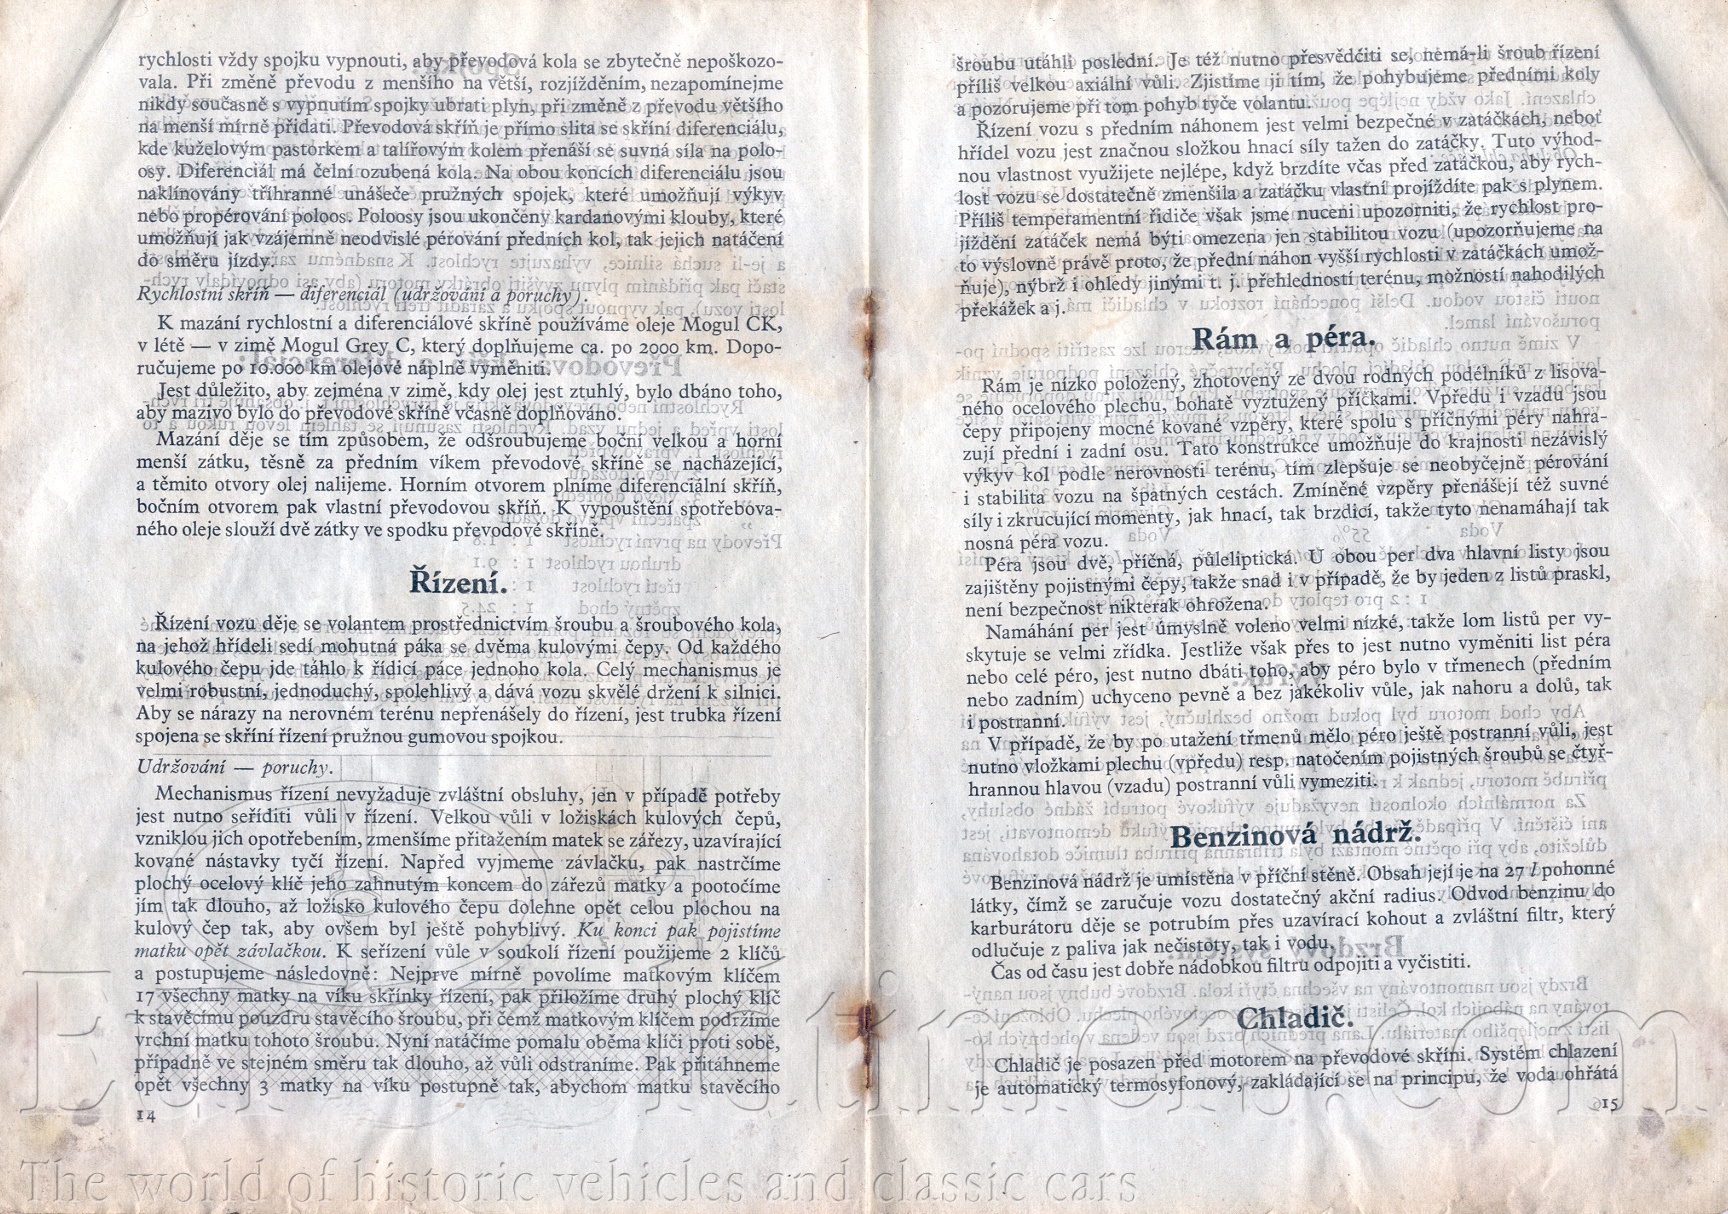 rychlosti vždy spojku vypnouti, aby převodová kola se zbytečně nepoškozo-
vala. Při změně převodu z menšího na větší, rozjížděním, nezapomínejme
nikdy současně s vypnutím spojky ubrati plyn, při změně z převodu většího
na menší mírně přidati. Převodová skříň je přímo slita se skříní diferenciálu,
kde kuželovým pastorkem a talířovým kolem přenáší se suvná síla na polo-
osy. Diferenciál má čelní ozubená kola. Na obou koncích diferenciálu jsou
naklínovány tříhranné unášeče pružných spojek, které umožňují výkyv
nebo propérování poloos. Poloosy jsou ukončeny kardanovými klouby, které
umožňují jak vzájemně neodvislé pérování předních kol, tak jejich natáčení
do směru jízdy.
Rychlostní skříň — diferenciál (udržování a poruchy).
K mazání rychlostní a diferenciálové skříně používáme oleje Mogul CK,
v létě — v zimě Mogul Grey C, který doplňujeme ca. po 2000 km. Dopo-
ručujeme po 10.000 km olejové náplně vyměniti.
Jest důležito, aby zejména v zimě, kdy olej jest ztuhlý, bylo dbáno toho,
aby mazivo bylo do převodové skříně včasně doplňováno.
Mazání děje se tím způsobem, že odšroubujeme boční velkou a horní
menší zátku, těsně za předním víkem převodové skříně se nacházející,
a těmito otvory olej nalijeme. Horním otvorem plníme diferenciální skříň,
bočním otvorem pak vlastní převodovou skříň. K vypouštění spotřebova-
ného oleje slouží dvě zátky ve spodku převodové skříně.
Řízení.
Řízení vozu děje se volantem prostřednictvím šroubu a šroubového kola,
na jehož hřídeli sedí mohutná páka se dvěma kulovými čepy. Od každého
kulového čepu jde táhlo k řídicí páce jednoho kola. Celý mechanismus je
velmi robustní, jednoduchý, spolehlivý a dává vozu skvělé držení k silnici.
Aby se nárazy na nerovném terénu nepřenášely do řízení, jest trubka řízení
spojena se skříní řízení pružnou gumovou spojkou.
Udržování — poruchy.
Mechanismus řízení nevyžaduje zvláštní obsluhy, jen v případě potřeby
jest nutno seříditi vůli v řízení. Velkou vůli v ložiskách kulových čepů,
vzniklou jich opotřebením, zmenšíme přitažením matek se zářezy, uzavírající
kované nástavky tyčí řízení. Napřed vyjmeme závlačku, pak nastrčíme
plochý ocelový klíč jeho zahnutým koncem do zářezů matky a pootočíme
jím tak dlouho, až ložisko kulového čepu dolehne opět celou plochou na
kulový čep tak, aby ovšem byl ještě pohyblivý. Ku konci pak pojistíme
matku opět závlačkou. K seřízení vůle v soukolí řízení použijeme 2 klíčů
a postupujeme následovně: Nejprve mírně povolíme matkovým klíčem
17 všechny matky na víku skřínky řízení, pak přiložíme druhý plochý klíč
k stavěcímu pouzdru stavěcího šroubu, při čemž matkovým klíčem podržíme
vrchní matku tohoto šroubu. Nyní natáčíme pomalu oběma klíči proti sobě,
případně ve stejném směru tak dlouho, až vůli odstraníme. Pak přitáhneme
opět všechny 3 matky na víku postupně tak, abychom matku stavěcího
14
šroubu utáhli poslední. Je též nutno přesvědčiti se, nemá-li šroub řízení
příliš velkou axiální vůli. Zjistíme ji tím, že pohybujeme předními koly
a pozorujeme při tom pohyb tyče volantu.
Řízení vozu s předním náhonem jest velmi bezpečné v zatáčkách, neboť
hřídel vozu jest značnou složkou hnací síly tažen do zatáčky. Tuto výhod-
nou vlastnost využijete nejlépe, když brzdíte včas před zatáčkou, aby rych-
lost vozu se dostatečně zmenšila a zatáčku vlastní projíždíte pak s plynem.
Příliš temperamentní řidiče však jsme nuceni upozorniti, že rychlost pro-
jíždění zatáček nemá býti omezena jen stabilitou vozu (upozorňujeme na
to výslovně právě proto, že přední náhon vyšší rychlosti v zatáčkách umož-
ňuje), nýbrž i ohledy jinými t. j. přehledností terénu, možností nahodilých
překážek a j.
Rám a péra.
Rám je nízko položený, zhotovený ze dvou rodných podélníků z lisova-
ného ocelového plechu, bohatě vyztužený příčkami. Vpředu i vzadu jsou
čepy připojeny mocné kované vzpěry, které spolu s příčnými péry nahra-
zují přední i zadní osu. Tato konstrukce umožňuje do krajnosti nezávislý
výkyv kol podle nerovnosti terénu, tím zlepšuje se neobyčejně pérování
i stabilita vozu na špatných cestách. Zmíněné vzpěry přenášejí též suvné
síly i zkrucující momenty, jak hnací, tak brzdicí, takže tyto nenamáhají tak
nosná péra vozu.
Péra jsou dvě, příčná, půleliptická. U obou per dva hlavní listy jsou
zajištěny pojistnými čepy, takže snad i v případě, že by jeden z listů praskl,
není bezpečnost nikterak ohrožena.
Namáhání per jest úmyslně voleno velmi nízké, takže lom listů per vy-
skytuje se velmi zřídka. Jestliže však přes to jest nutno vyměniti list péra
nebo celé péro, jest nutno dbáti toho, aby péro bylo v třmenech (předním
nebo zadním) uchyceno pevně a bez jakékoliv vůle, jak nahoru a dolů, tak
i postranní.
V případě, že by po utažení třmenů mělo péro ještě postranní vůli, jest
nutno vložkami plechu (vpředu) resp. natočením pojistných šroubů se čtyř-
hrannou hlavou (vzadu) postranní vůli vymeziti.
Benzinová nádrž.
Benzinová nádrž je umístěna v příční stěně. Obsah její je na 27 l pohonné
látky, čímž se zaručuje vozu dostatečný akční radius. Odvod benzinu do
karburátoru děje se potrubím přes uzavírací kohout a zvláštní filtr, který
odlučuje z paliva jak nečistoty, tak i vodu.
Čas od času jest dobře nádobkou filtru odpojiti a vyčistiti.
Chladič.
Chladič je posazen před motorem na převodové skříni. Systém chlazení
je automatický termosyfonový, zakládající se na principu, že voda ohřátá
15
The world of historic vehicles and classic cars